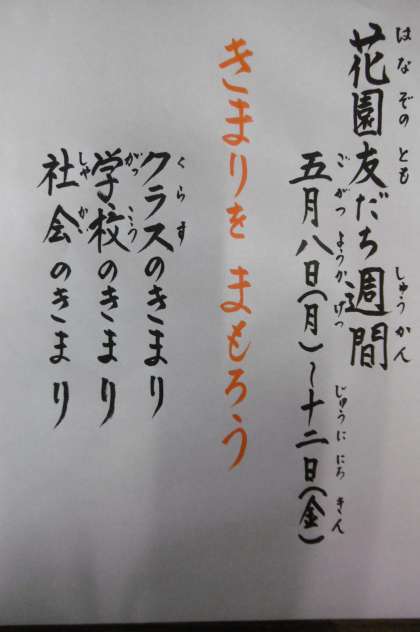 花園友だち週間
はなぞのとも
しゅうかん
五月八日(月)～十二日(金)
ごがつようかげつ
じゅうににちきん
きまりを まもろう
クラスのきまり
くらす
学校のきまり
がっこう
社会のきまり
しゃかい